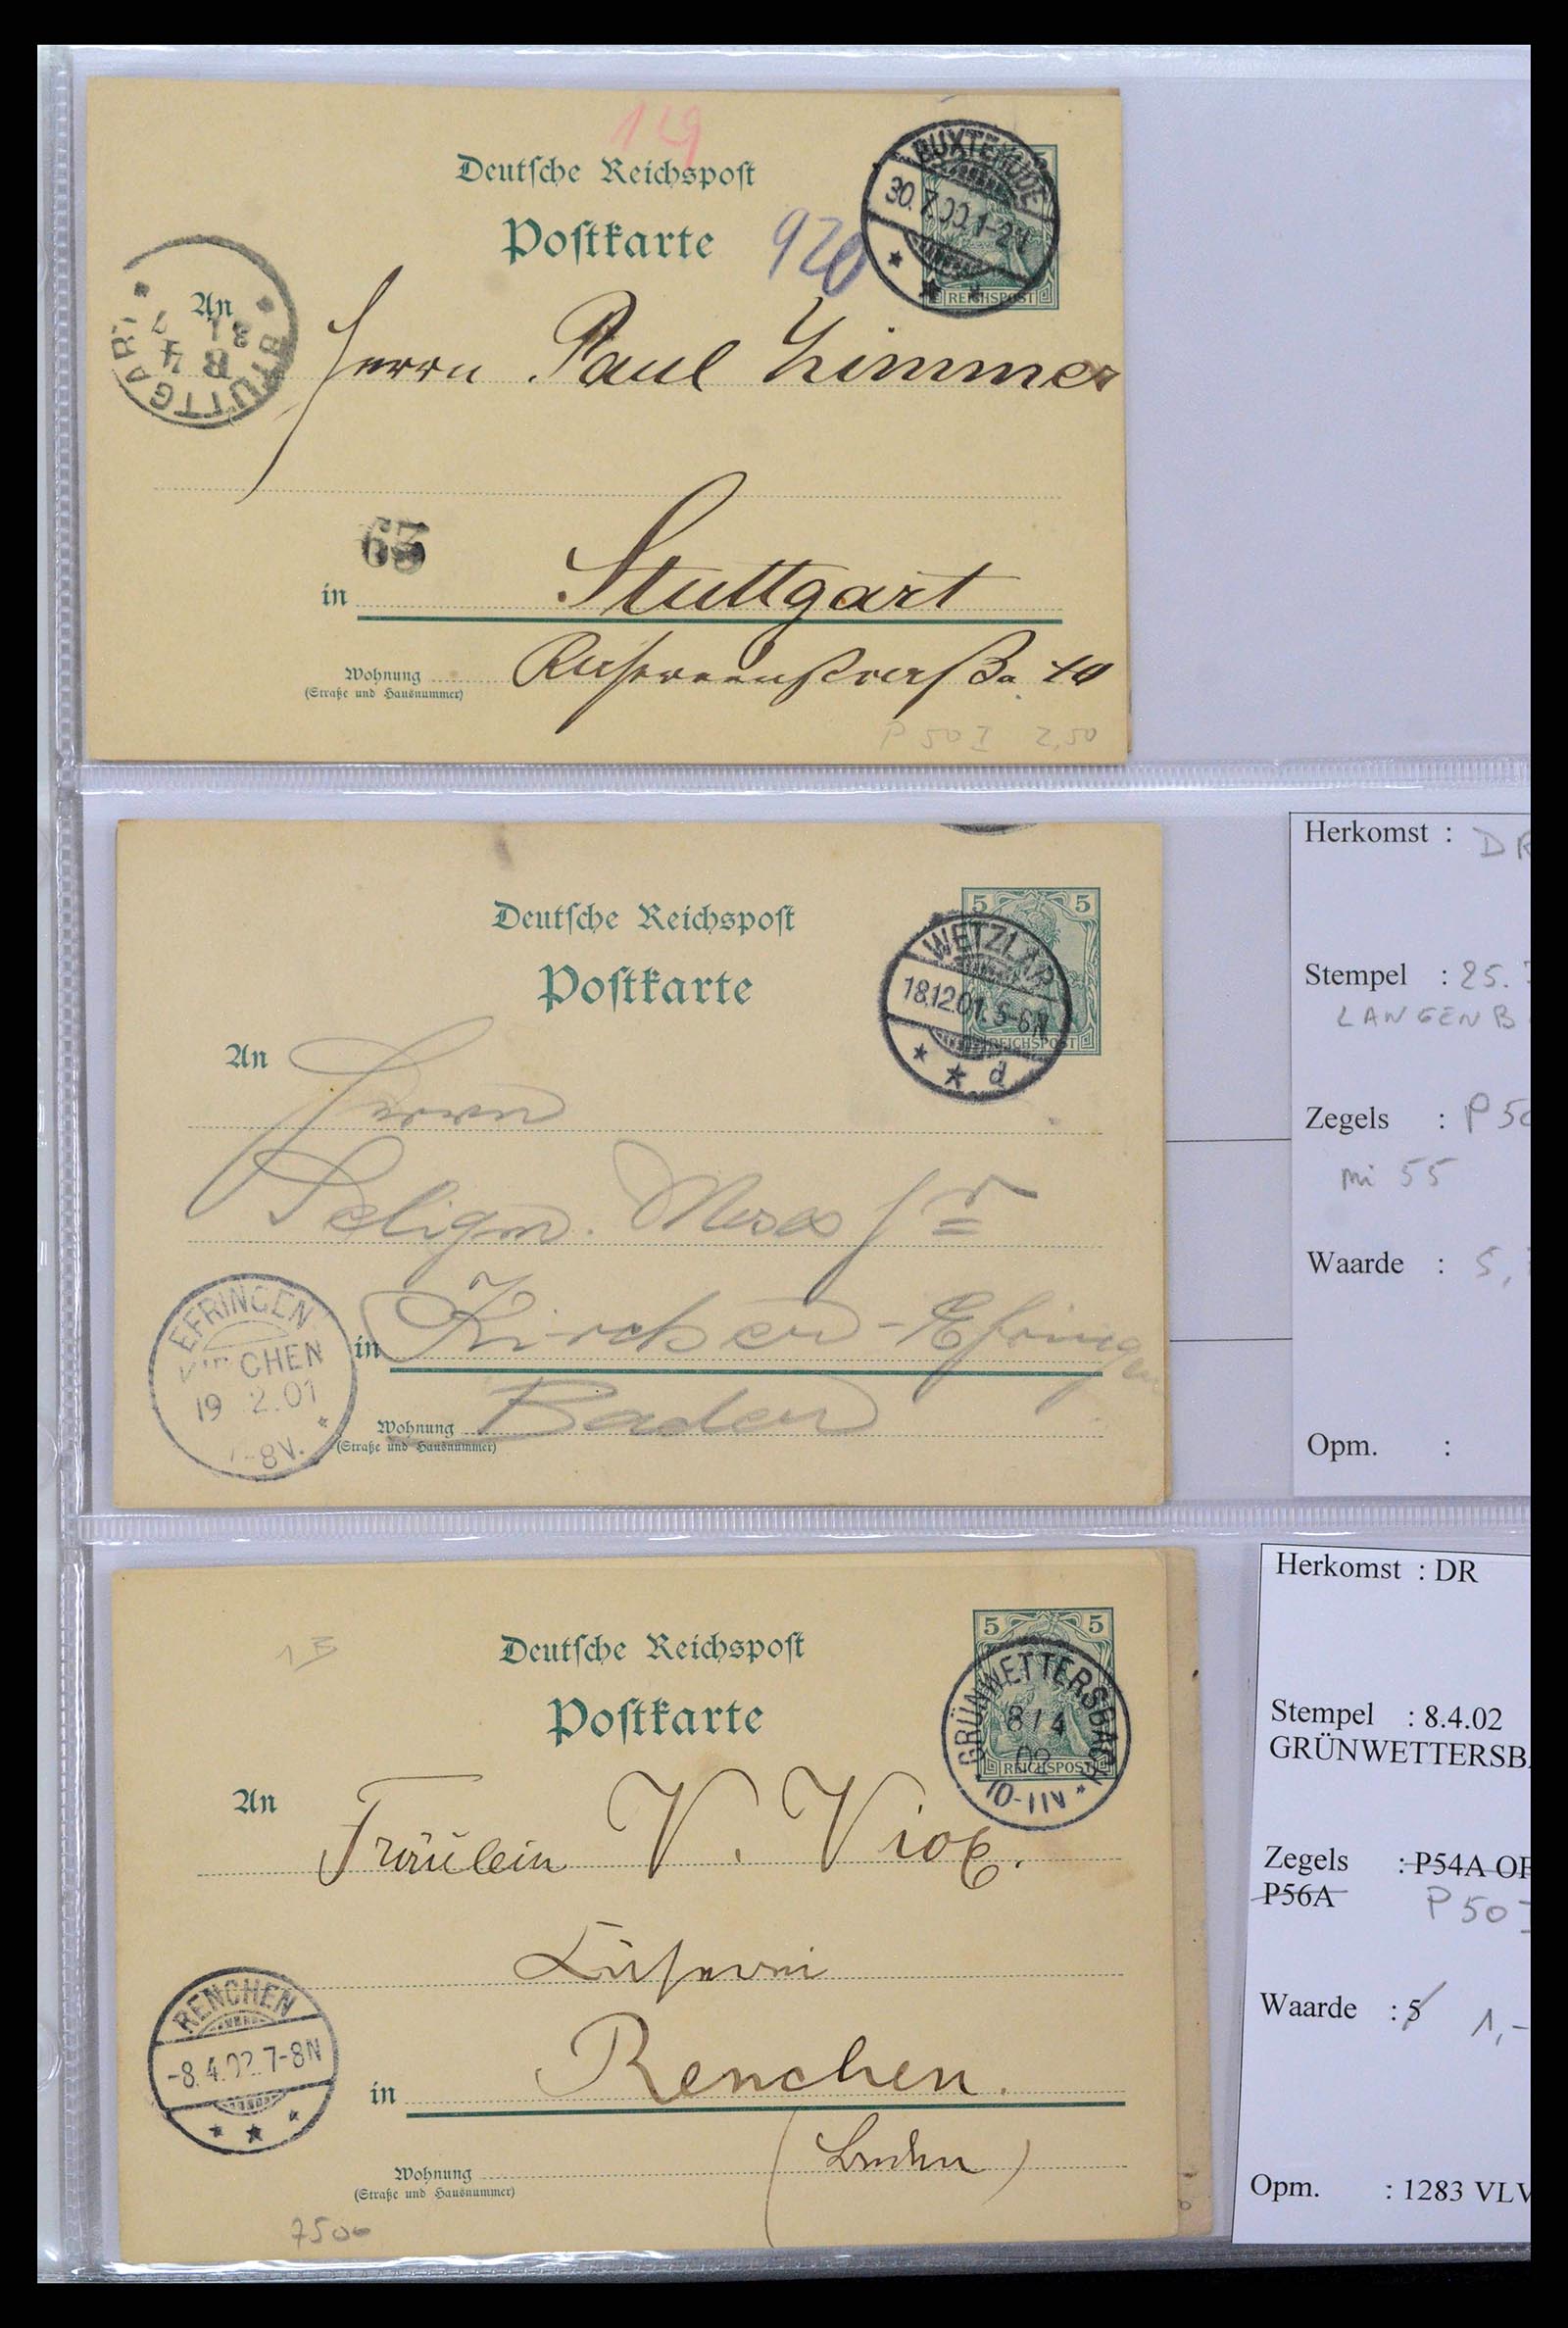 119
Deutsche Reichspost
Postkarte
920
BUXTEHUDE
30.7.00.1-2N
REICHSPOST
An
STUTTGART
31 7
B 4
Herrn Paul Zimmer
63
in Stuttgart
Wohnung
(Straße und Hausnummer)
10
P 50 I 2,50
Deutsche Reichspost
Postkarte
5 5
WETZLAR
18.12.01.5-6N
d
REICHSPOST
An
Herrn
Seligm. Moses
in Kirchen-Efringen
Baden
EFRINGEN
KIRCHEN
19 2.01
-8V.
Wohnung
(Straße und Hausnummer)
Herkomst : DR
Stempel : 25.
LANGENB
Zegels : P 50
mi 55
Waarde : 5,
Opm. :
Deutsche Reichspost
Postkarte
5 5
GRÜNWETTERSBACH
8/4
02
10-11V
REICHSPOST
An
Fräulein V. Viol.
RENCHEN
-8.4.02.7-8N
in Renchen.
(Baden)
Wohnung
(Straße und Hausnummer)
7500
Herkomst : DR
Stempel : 8.4.02
GRÜNWETTERSB
Zegels : P54A OF
P56A P 50
Waarde : 5 1,-
Opm. : 1283 VLV